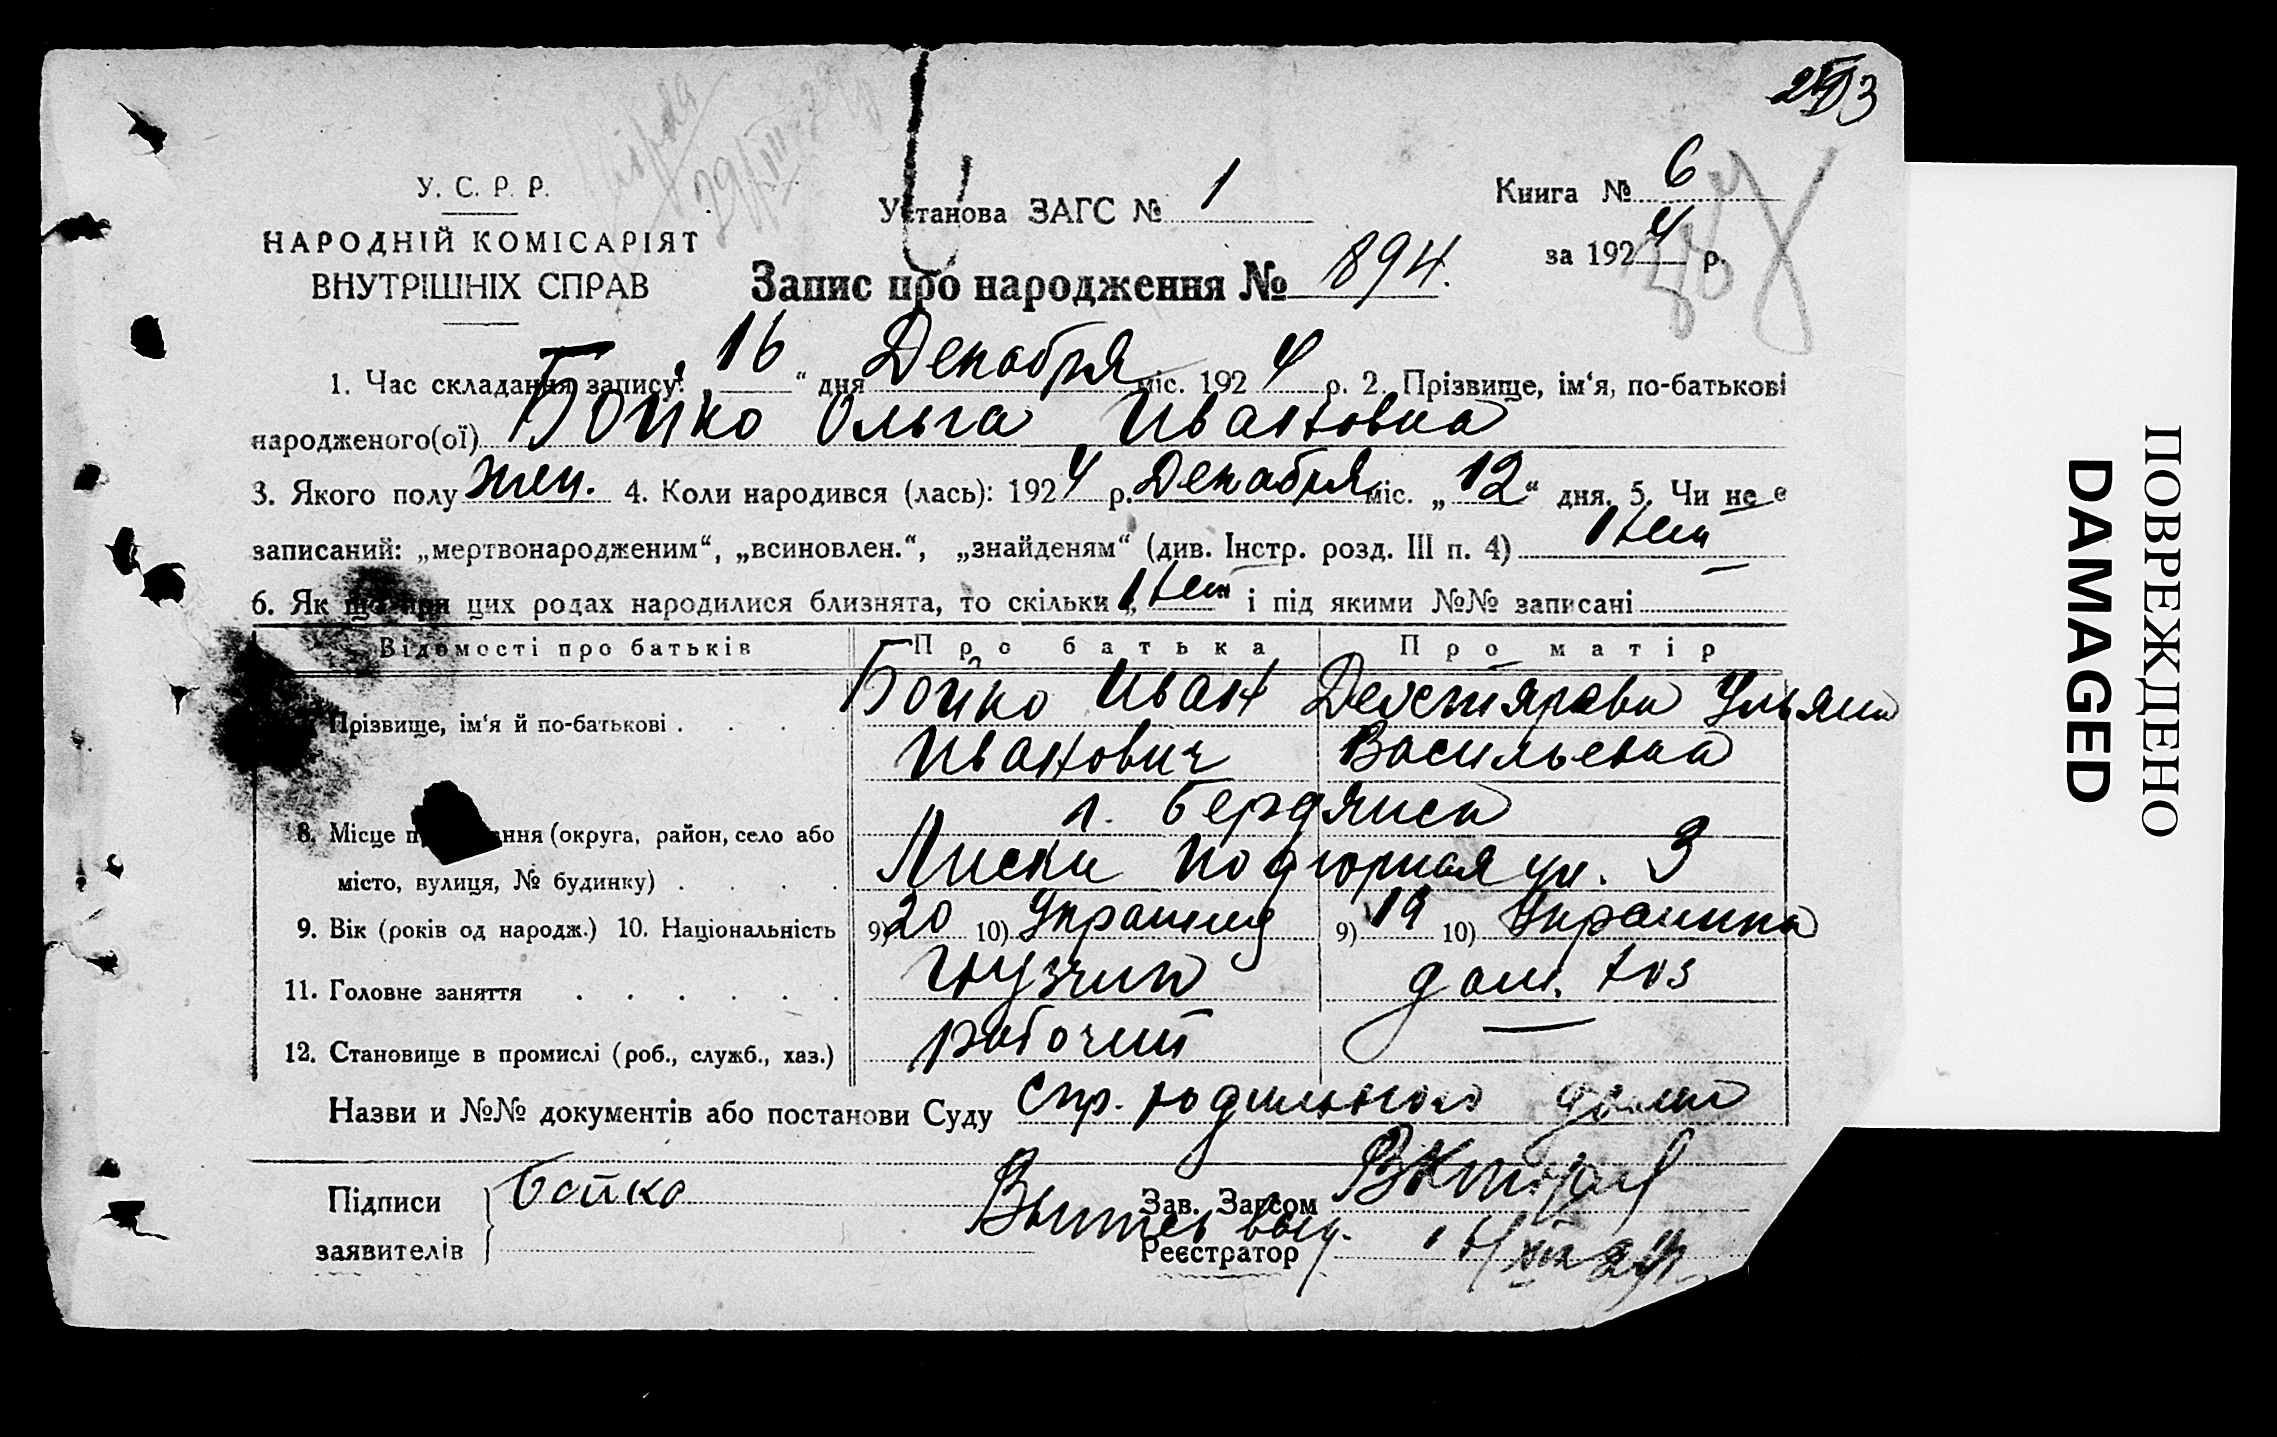 У. С. Р. Р.
НАРОДНІЙ КОМІСАРІЯТ
ВНУТРІШНІХ СПРАВ
Установа ЗАГС № 1
Книга № 6
за 1924 р.
Запис про народження № 894.
1. Час складання запису: „16“ дня Декабря міс. 1924 р. 2. Прізвище, ім‘я, по-батькові
народженого(ої) Бойко Ольга Ивановна
3. Якого полу жен. 4. Коли народився (лась): 1924 р. Декабря міс. „12“ дня. 5. Чи не є
записаний: „мертвонародженим“, „всиновлен.“, „знайденям“ (див. Інстр. розд. III п. 4) Нет
6. Як що при цих родах народилися близнята, то скільки „Нет“ і під якими №№ записані
Відомості про батьків Про батька Про матір
Прізвище, ім‘я й по-батькові . . . . Бойко Иван Дегтярева Ульяна
Иванович Васильевна
г. Бердянск
8. Місце ння (округа, район, село або
місто, вулиця, № будинку) . . . . Лиски Подгорная ул. 3
9. Вік (років од народж.) 10. Національність 9) 20 10) Украинец 9) 19 10) Украинка
11. Головне заняття . . . . . . Грузчик дом. хоз
12. Становище в промислі (роб., служб., хаз.) рабочий —
Назви и №№ документів або постанови Суду Спр. родильного дома
Підписи заявителів Бойко
Зав. Загсом
Реєстратор
ПОВРЕЖДЕНО
DAMAGED